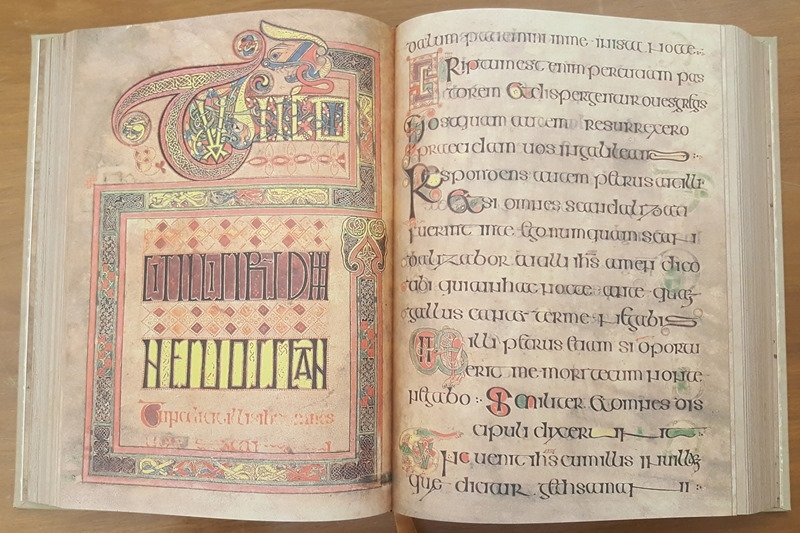 Tunc
dalum patiemini in me in ista nocte
Scriptum est enim percutiam pas
torem & dispergentur oues gregis
Postquam autem resurrexero
praecidam uos in galileam
Respondens autem petrus ait illi
& si omnes scandalizati
fuerint in te ego numquam scan
dalizabor ait illi ihs amen dico
tibi quia in hac nocte ante quam
gallus cantus ter me negabis
Ait illi petrus etiam si oportu
erit me mori tecum non te
negabo Similiter & omnes dis
cipuli dixerunt
Tunc uenit ihs cum illis in uillam
quae dicitur gethsamani